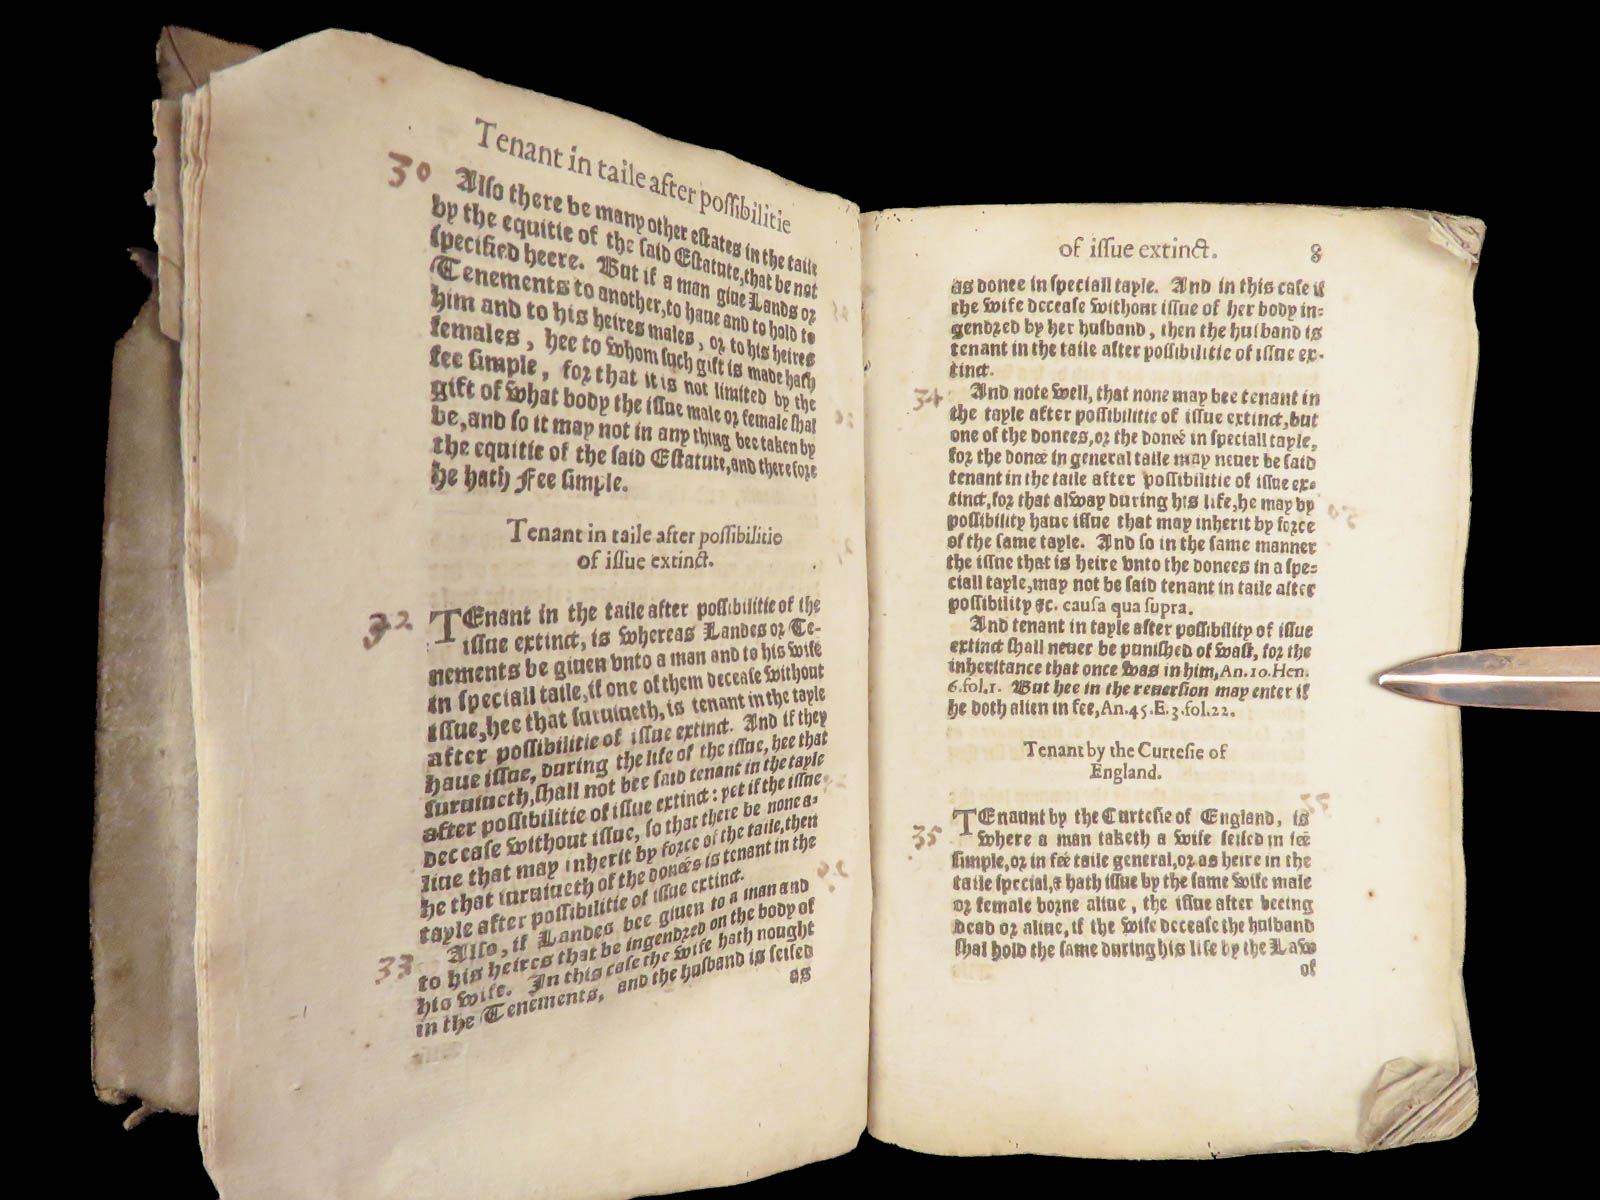 Tenant in taile after possibilitie
30 Also there be many other estates in the taile
by the equitie of the said Estatute, that be not
specified heere. But if a man giue Lands or
Tenements to another, to haue and to hold to
him and to his heires males, or to his heires
females, hee to whom such gift is made hath
fee simple, for that it is not limited by the
gift of what body the issue male or female shal
be, and so it may not in any thing bee taken by
the equitie of the said Estatute, and therefore
he hath Fee simple.
Tenant in taile after possibilitie
of issue extinct.
32 TEnant in the taile after possibilitie of the
issue extinct, is whereas Landes or Te-
nements be giuen vnto a man and to his wife
in speciall taile, if one of them decease without
issue, hee that suruiueth, is tenant in the tayle
after possibilitie of issue extinct. And if they
haue issue, during the life of the issue, hee that
suruiueth, shall not bee said tenant in the tayle
after possibilitie of issue extinct: yet if the issue
decease without issue, so that there be none a-
liue that may inherit by force of the taile, then
he that suruiueth of the donées is tenant in the
tayle after possibilitie of issue extinct.
33 Also, if Landes bee giuen to a man and
to his heires that be ingendred on the body of
his wife. In this case the wife hath nought
in the Tenements, and the husband is seised
as
of issue extinct. 8
as donee in speciall tayle. And in this case if
the wife decease without issue of her body in-
gendred by her husband, then the husband is
tenant in the taile after possibilitie of issue ex-
tinct.
34 And note well, that none may bee tenant in
the tayle after possibilitie of issue extinct, but
one of the donees, or the doneé in speciall tayle,
for the doneé in general taile may neuer be said
tenant in the taile after possibilitie of issue ex-
tinct, for that alway during his life, he may by
possibility haue issue that may inherit by force
of the same tayle. And so in the same manner
the issue that is heire vnto the donees in a spe-
ciall tayle, may not be said tenant in taile after
possibility &c. causa qua supra.
And tenant in tayle after possibility of issue
extinct shall neuer be punished of wast, for the
inheritance that once was in him, An. 10. Hen.
6. fol. 1. But hee in the reuersion may enter if
he doth alien in fee, An. 45. E. 3. fol. 22.
Tenant by the Curtesie of
England.
35 TEnaunt by the Curtesie of England, is
where a man taketh a wife seised in feé
simple, or in feé taile general, or as heire in the
taile special, & hath issue by the same wife male
or female borne aliue, the issue after beeing
dead or aliue, if the wife decease the husband
shal hold the same during his life by the Law
of